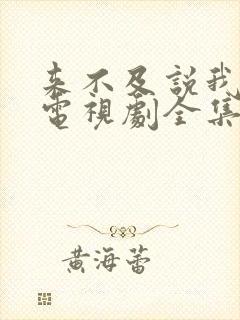 来不及説我
電視劇全集
黄海蕾